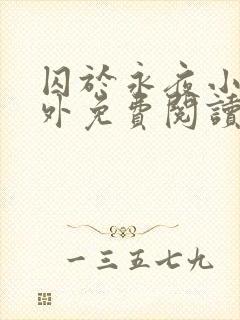 囚於永夜小
外免費閱讀
一三五七九